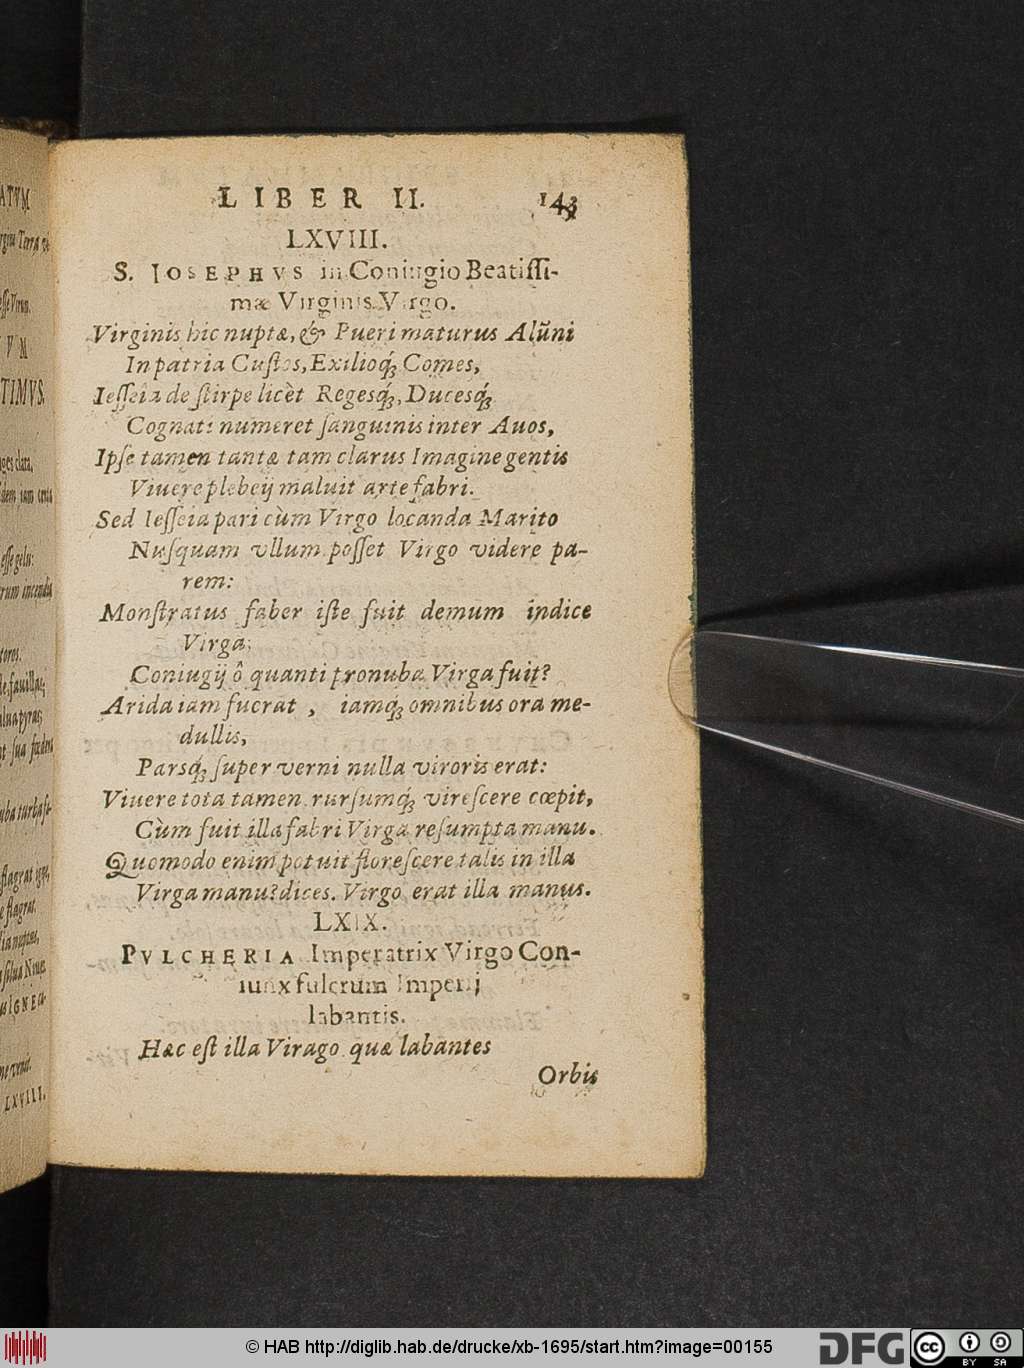 LIBER II. 143
LXVIII.
S. IOSEPHVS in Coniugio Beatiſſi-
mæ Virginis Virgo.
Virginis hic nuptæ, & Pueri maturus Alũni
In patria Cuſtos, Exilioq́; Comes,
Ieſſeia de ſtirpe licèt Regesq́;, Ducesq́;
Cognati numeret ſanguinis inter Auos,
Ipſe tamen tantæ tam clarus Imagine gentis
Viuere plebeij maluit arte fabri.
Sed Ieſſeia pari cùm Virgo locanda Marito
Nuſquam vllum poſſet Virgo videre pa-
rem:
Monſtratus faber iſte fuit demum indice
Virga;
Coniugij ô quanti pronuba Virga fuit?
Arida iam fuerat, iamq́; omnibus ora me-
dullis,
Parsq́; ſuper verni nulla viroris erat:
Viuere tota tamen rurſumq́; vireſcere cœpit,
Cùm fuit illa fabri Virga reſumpta manu.
Quomodo enim potuit floreſcere talis in illa
Virga manu? dices. Virgo erat illa manus.
LXIX.
PVLCHERIA Imperatrix Virgo Con-
iunx fulcrum Imperij
labantis.
Hæc eſt illa Virago quæ labantes
Orbis
ATVM
TIMVS.
LXVIII.
© HAB http://diglib.hab.de/drucke/xb-1695/start.htm?image=00155
DFG
cc
BY SA